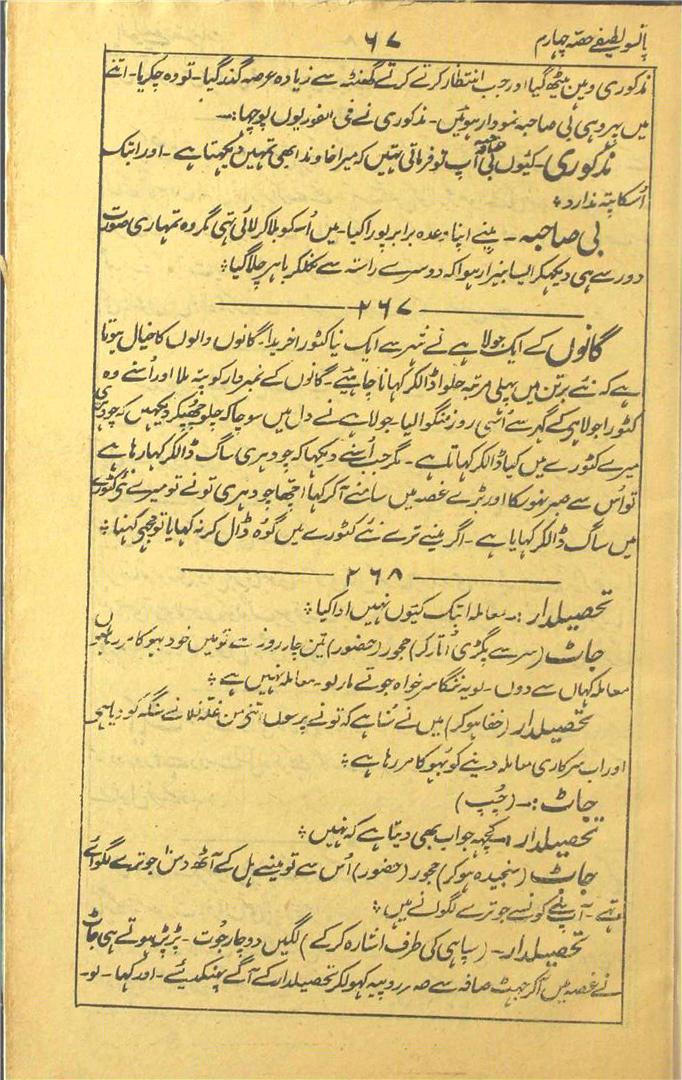 پانسو لطیفے حصہ چہارم
۶۷
مذکوری وہین بیٹھ گیا اور جب انتظار کرتے کرتے گھنٹہ سے زیادہ عرصہ گذر گیا ۔ تو وہ چکریا ۔ اتنے
میں پہر وہی بی صاحبہ نمودار ہوئیں ۔ مذکوری نے فی الفور یوں پوچہا :۔
مذکوری ۔ کیوں بی صاحبہ آپ تو فرماتی تہیں کہ میرا خاوند ابھی تمہیں دیکہتا ہے ۔ اور ابتک
اُسکا پتہ ندارد ؞
بی صاحبہ ۔ مینے اپنا وعدہ برابر پورا کیا ۔ میں اُسکو بلا کر لائی تہی مگر وہ تمہاری صورت
دور سے ہی دیکہکر ایسا بیزار ہوا کہ دوسرے راستہ سے نکلکر باہر چلا گیا ؞
۲۶۷
گانوں کے ایک جولاہے نے شہر سے ایک نیا کٹورا خریدا ۔ گانوں والوں کا خیال ہوتا
ہے کہ نئے برتن میں پہلی مرتبہ حلوا ڈالکر کہانا چاہیئے ۔ گانوں کے نمبردار کو پتہ ملا اور اُسنے وہ
کٹورا جولاہی کے گہر سے اُسی روز منگوا لیا ۔ جولاہے نے دل میں سوچا کہ چلو چھپکر دیکہیں کہ چودہری
میرے کٹورے میں کیا ڈالکر کہاتا ہے ۔ مگر جب اُسنے دیکہا کہ چودہری ساگ ڈالکر کہا رہا ہے
تو اُس سے صبر نہوسکا اور بڑے غصہ میں سامنے آکر کہا اچہا چودہری تو نے تو میرے نئی کٹورے
میں ساگ ڈالکر کہایا ہے ۔ اگر مینے ترے نئے کٹورے میں گوہ ڈال کر نہ کہایا تو مجہے کہنا ؞
۲۶۸
تحصیلدار :۔ معاملہ ابتک کیوں نہیں ادا کیا ؞
جاٹ (سر سے پگڑی اُتار کر) حجور (حضور) تین چار روز سے تو میں خود بہوکا مر رہا ہوں
معاملہ کہاں سے دوں ۔ لو یہ ننگا سر خواہ جوتے مار لو ۔ معاملہ نہیں ہے ؞
تحصیلدار (خفا ہو کر) میں نے سُنا ہے کہ تو نے پرسوں اتنی من غلہ فلانے سنگہ کو دیا ہی
اور اب سرکاری معاملہ دینے کو بہوکا مر رہا ہے ؞
جاٹ :۔ (چُپ)
تحصیلدار ۔ کچہہ جواب بھی دیتا ہے کہ نہیں ؞
جاٹ (سنجیدہ ہو کر) حجور (حضور) اُس سے تو مینے ہل کے آٹھ دس جوترے لگوائے
تہے ۔ آپنے کونسے جوترے لگوانے ہیں ؞
تحصیلدار ۔ (سپاہی کی طرف اشارہ کر کے) لگیں دو چار جوت ۔ پڑ پڑ ہوتے ہی جاٹ
نے غصہ میں آکر جہٹ صافہ سے روپیہ کہولکر تحصیلدار کے آگے پہینکدیئے ۔ اور کہا ۔ لو ۔